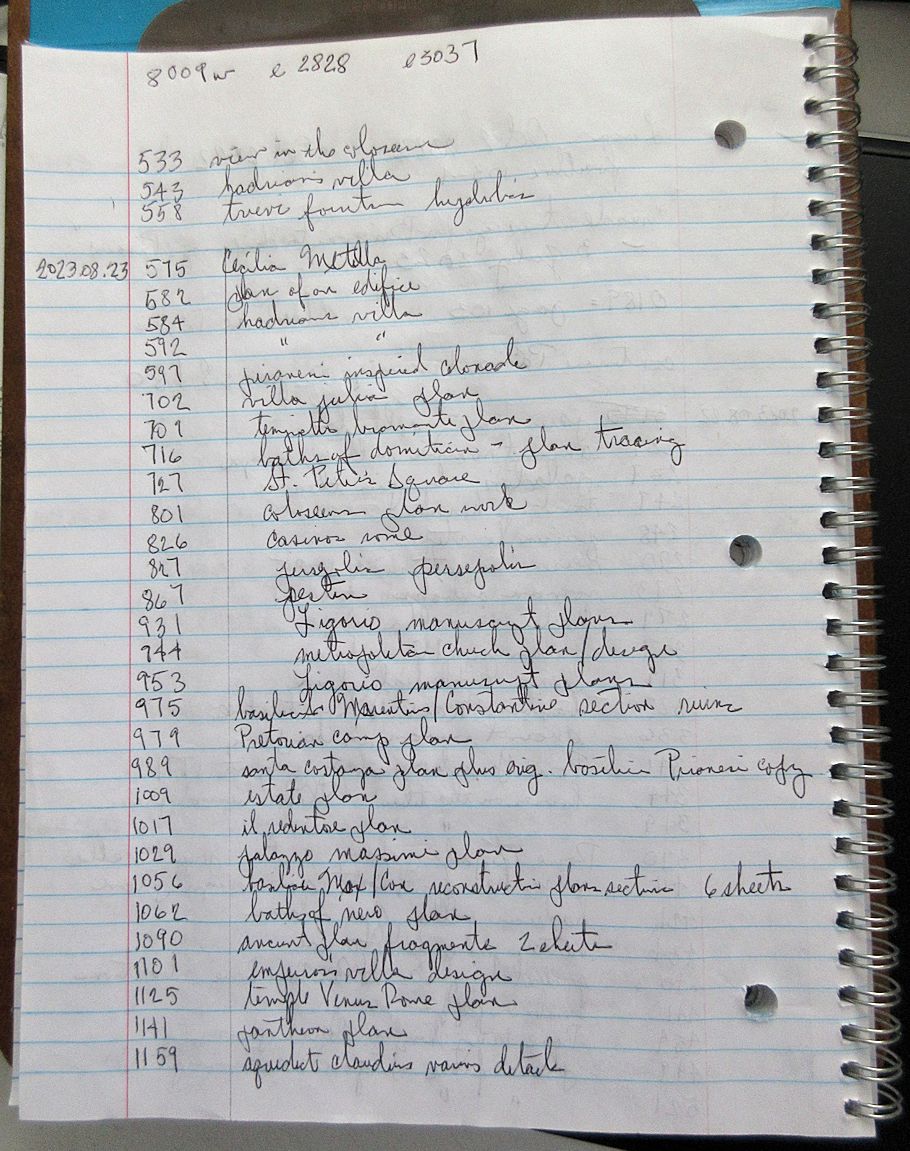 8009w e2828 e3037
533 view in the coloseum
543 hadrian's villa
558 trevi fountain
2023.08.23 575 Cecilia Metella
582 plan of an edifice
584 hadrians villa
592 " "
597 piranesi inspired colonade
702 villa julia plan
709 tempietto bramante plan
716 baths of domitian - plan tracing
727 St. Peter's Square
801 coloseum plan work
826 casinos rome
827 persepolis
867 pestum
931 Ligorio manuscript plans
944 metropolitan church plan/design
953 Ligorio manuscript plans
975 basilica Maxentius/Constantine section ruins
979 Pretorian camp plan
989 santa costanza plan plus orig. basilica Piranesi copy
1009 estate plan
1017 il redentore plan
1029 palazzo massimi plan
1056 basilica Max/Con reconstruction plans section 6 sheets
1062 baths of nero plan
1090 ancient plan fragments 2 sheets
1101 emperor's villa design
1125 temple Venus Rome plan
1141 pantheon plan
1159 aqueduct claudius various details